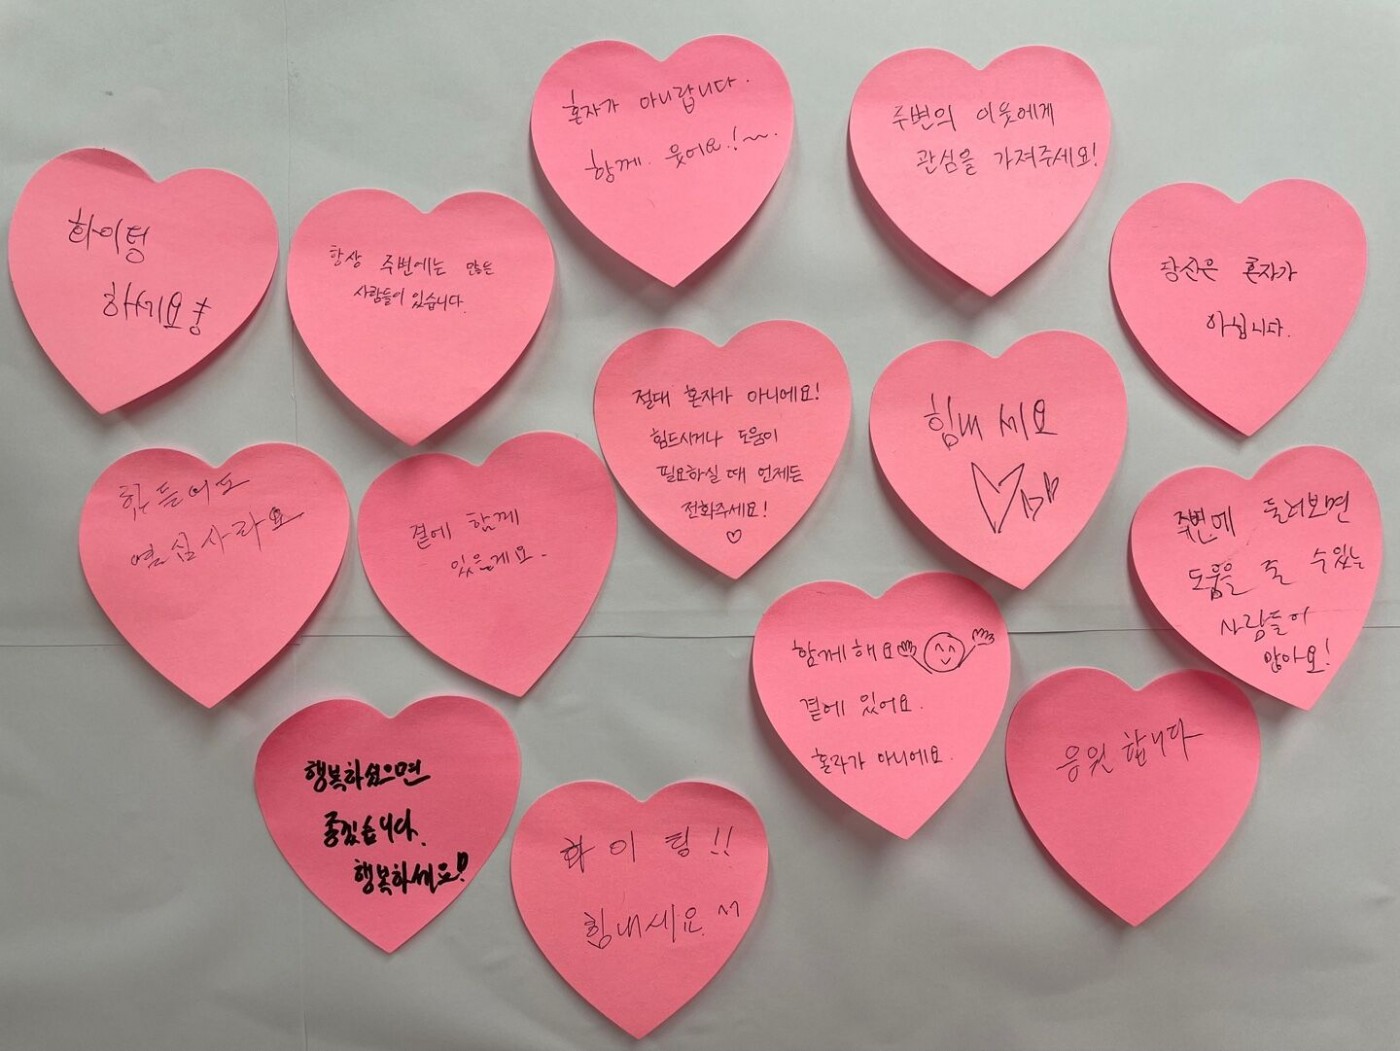 혼자가 아니랍니다.
함께. 웃어요.!~~.
주변의 이웃에게
관심을 가져주세요!
화이팅
하세요!
항상 주변에는 많은
사람들이 있습니다.
당신은 혼자가
아닙니다.
절대 혼자가 아니에요!
힘드시거나 도움이
필요하실 때 언제든
전화주세요!
♡
힘내세요
힘들어도
열심사라요
곁에 함께
있을게요.
주변에 둘러보면
도움을 줄 수있는
사람들이
많아요!
함께해요
곁에 있어요.
혼자가 아니에요.
응원합니다
행복하셨으면
좋겠습니다.
행복하세요!
화이팅!!
힘내세요^^